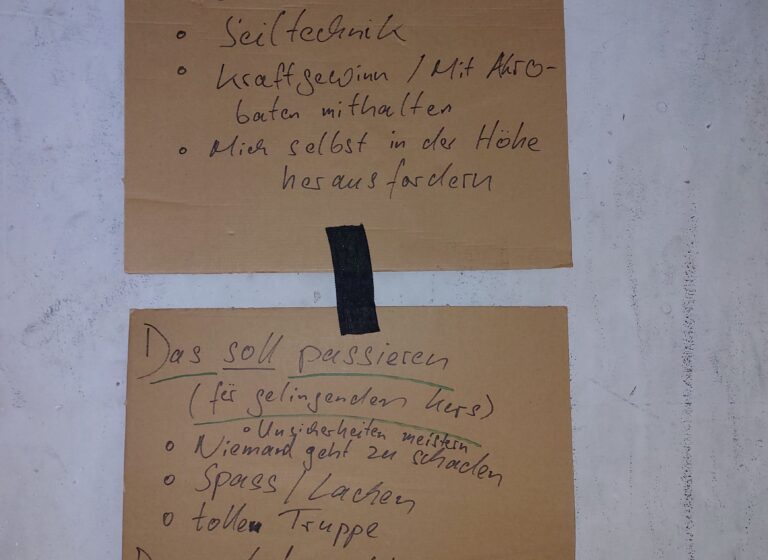 • Seiltechnik
• Kraftgewinn / Mit Akro-
baten mithalten
• Mich selbst in der Höhe
herausfordern
Das soll passieren
(für gelingenden Kurs)
• Unsicherheiten meistern
• Niemand geht zu schaden
• Spass / Lachen
• tollen Truppe